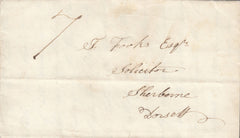 7
T Fooks Esqr
Solicitor
Sherborne
Dorsett